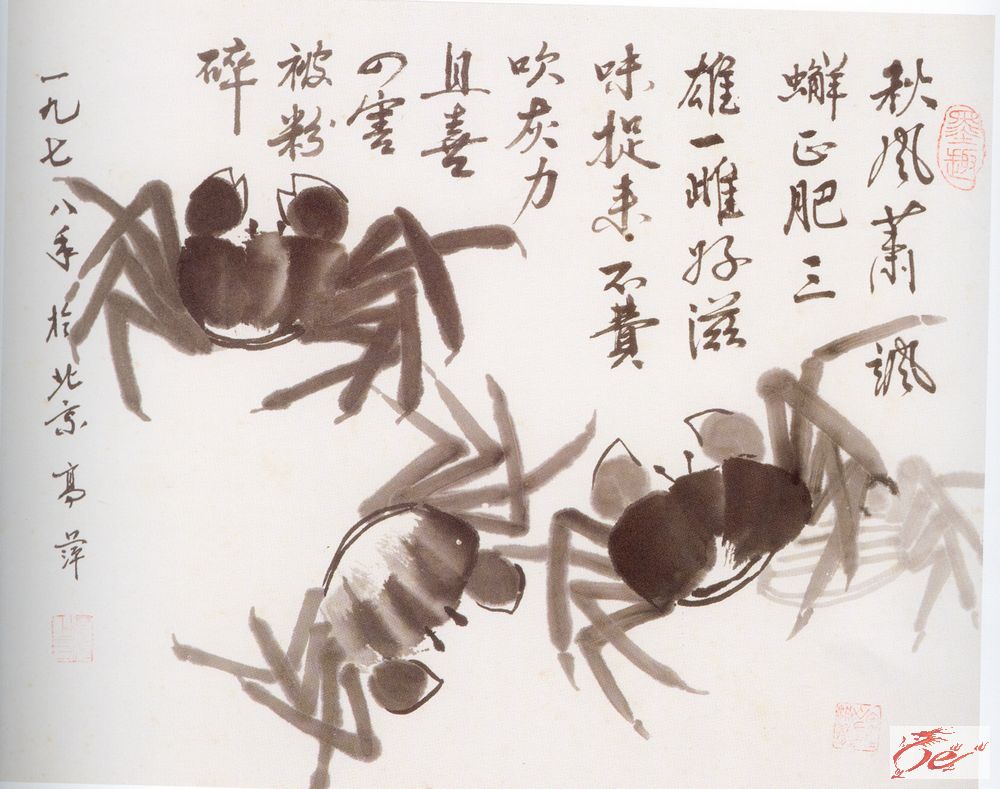 秋风萧飒
蟹正肥三
雄一雌好滋
味捉来不费
吹灰力
且喜
四害
被粉
碎
一九七八年於北京高萍
墨趣